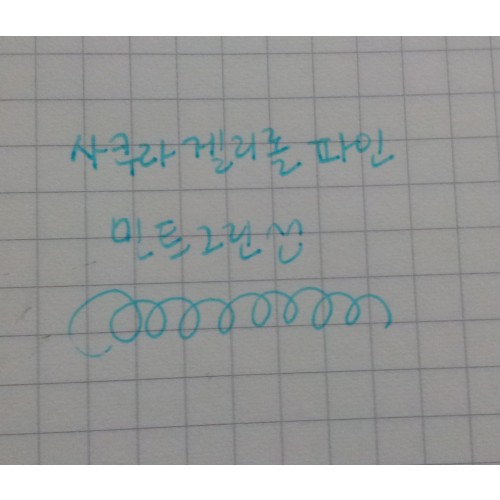 사쿠라 겔리롤 파인
민트그린 선